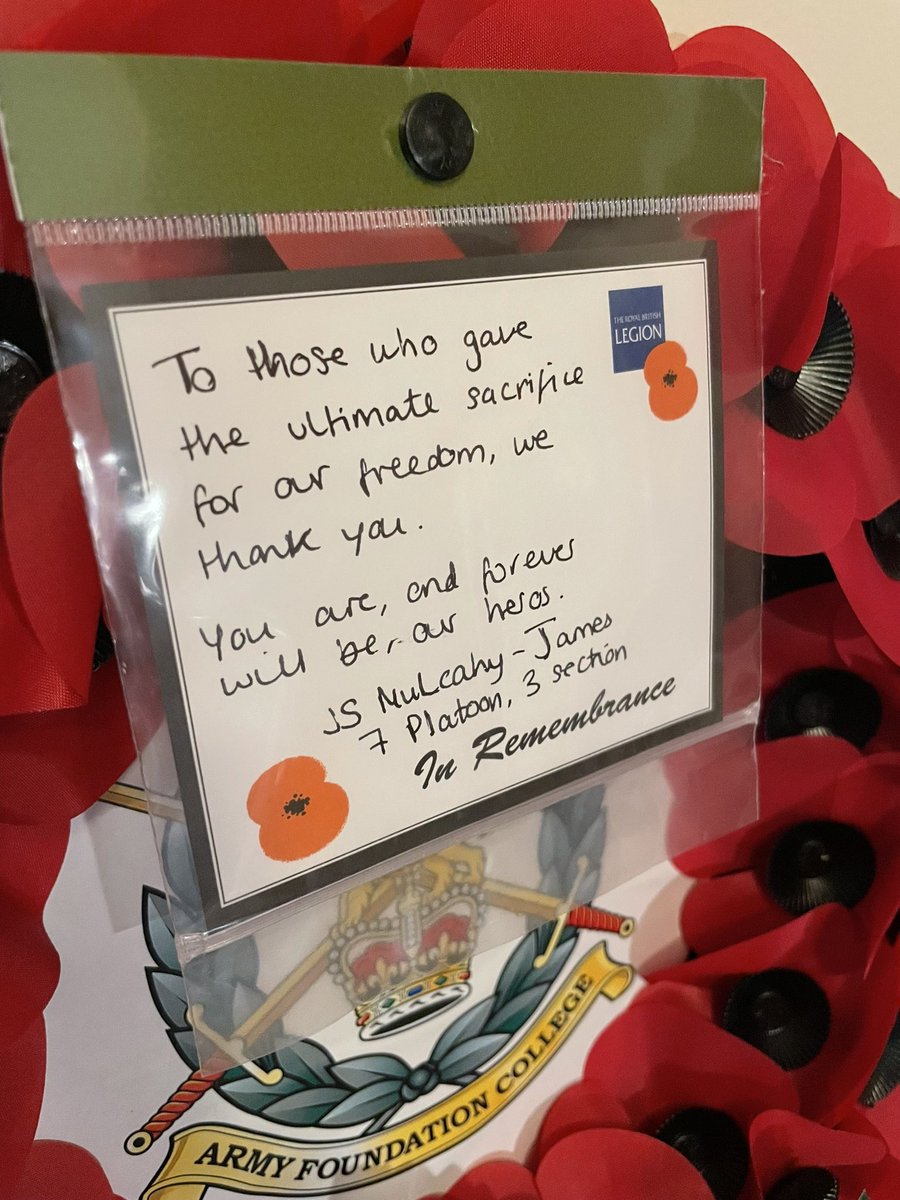 THE ROYAL BRITISH
LEGION
To those who gave
the ultimate sacrifice
for our freedom, we
thank you.
You are, and forever
will be, our heros.
JS Mulcahy-James
7 Platoon, 3 section
In Remembrance
ARMY FOUNDATION COLLEGE